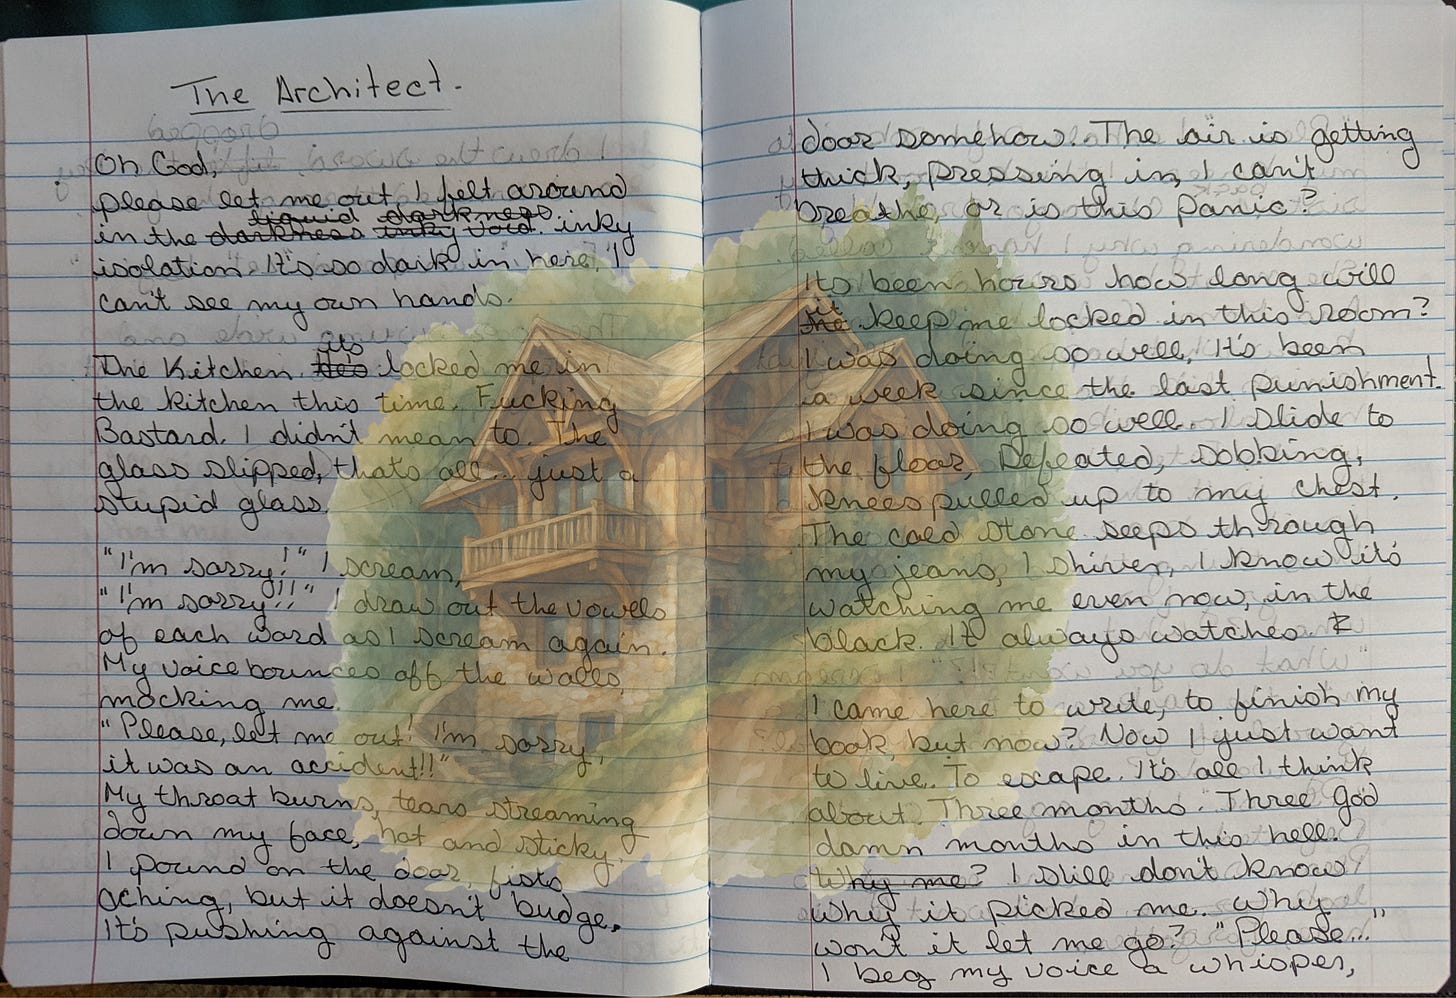 The Architect.
Oh God,
please let me out, I felt around
liquid darkness
in the darkness inky void. inky
isolation. It's so dark in here, I
can't see my own hands.
its
The Kitchen. he's locked me in
the kitchen this time. Fucking
Bastard. I didn't mean to. The
glass slipped, thats all... just a
stupid glass.
"I'm sorry!" I scream,
"I'm sorry!!" I draw out the vowels
of each word as I scream again.
My voice bounces off the walls,
mocking me.
"Please, let me out! I'm sorry,
it was an accident!!"
My throat burns, tears streaming
down my face, hot and sticky.
I pound on the door, fists
aching, but it doesn't budge,
It's pushing against the
door somehow. The air is getting
thick, pressing in, I can't
breathe, or is this panic?
Its been hours how long will
it
he keep me locked in this room?
I was doing so well, It's been
a week since the last punishment.
I was doing so well. I slide to
the floor, Defeated, sobbing,
knees pulled up to my chest.
The cold stone seeps through
my jeans, I shiver, I know it's
watching me even now, in the
black. It always watches.
I came here to write, to finish my
book, but now? Now I just want
to live. To escape. It's all I think
about. Three months. Three god
damn months in this hell.
Why me? I still don't know
why it picked me. why
won't it let me go? "Please..."
I beg my voice a whisper,